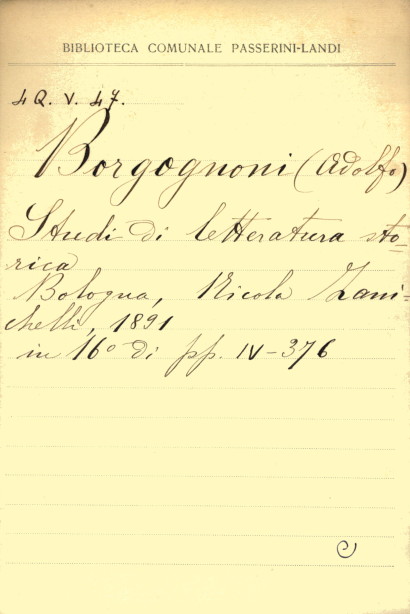 BIBLIOTECA COMUNALE PASSERINI-LANDI
4 Q. V. 47.
Borgognoni (Adolfo)
Studi di letteratura sto=
rica
Bologna, Nicola Zani=
chelli, 1891
in 16° di pp. IV-376